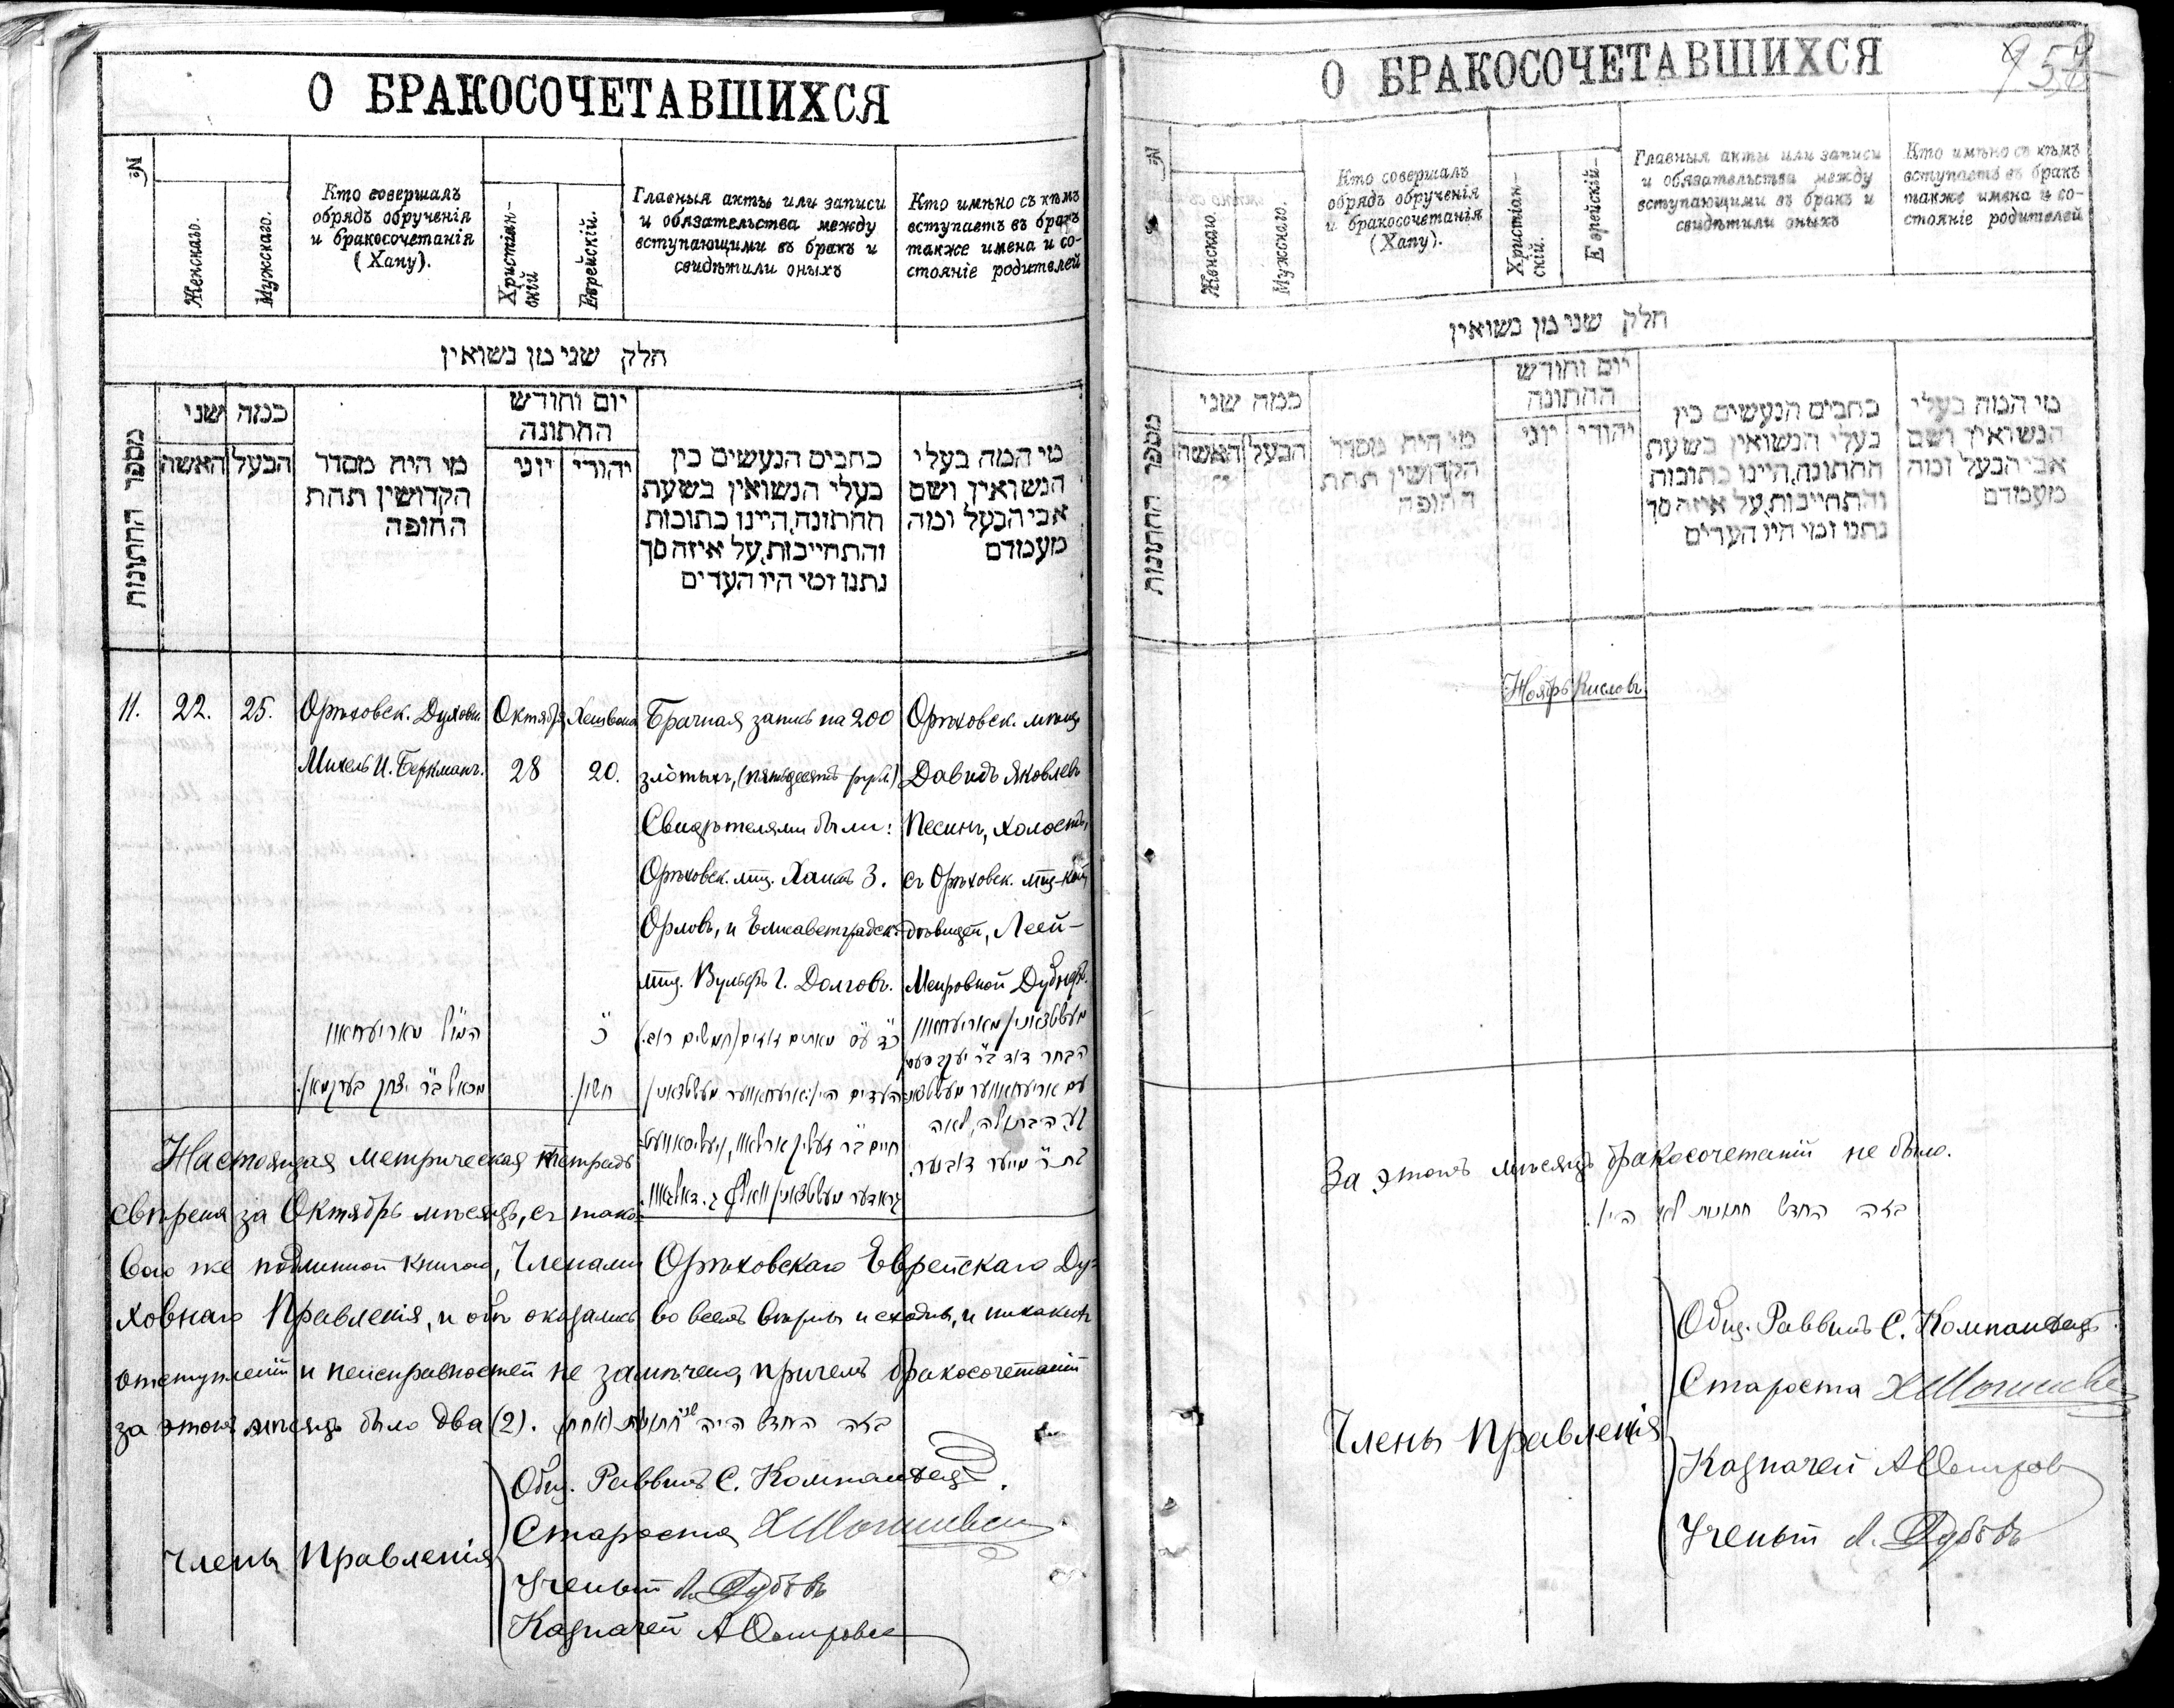 О БРАКОСОЧЕТАВШИХСЯ
№
Женскаго.
Мужскаго.
Кто совершалъ
обрядъ обрученія
и бракосочетанія
(Хапу).
Христіан-
скій
Еврейскій.
Главныя акты или записи
и обязательства между
вступающими въ бракъ и
свидѣтили оныхъ
Кто имѣно съ кѣмъ
вступаетъ въ бракъ
также имена и со-
стояніе родителей
חלק שני מן נשואין
מספר החתונות
כמה שני
האשה
הבעל
מי היה מסדר
הקדושין תחת
החופה
יום וחודש
החתונה
יוני
יהודי
כתבים הנעשים בין
בעלי הנשואין בשעת
החתונה, היינו כתובות
והתחייבות, על איזה סך
נתנו ומי היו העדים
מי המה בעלי
הנשואין, ושם
אבי הבעל ומה
מעמדם
11.
22.
25.
Орѣховск. Духовн.
Михель И. Беркманъ.
Октябр
28
Хешвона
20.
Брачная запись на 200
злотыхъ, (пятьдесятъ руб.)
Свидѣтелями были:
Орѣховск. мѣщ. Хаимъ З.
Орловъ, и Елисаветградск.
мѣщ. Вульфъ Г. Долговъ.
Орѣховск. мѣщ
Давидъ Яковлевъ
Песинъ, холостъ,
съ Орѣховск. мѣщ-кой
дѣвицей, Леей-
Меировной Дубнеръ.
מיכאל ב״ר יצחק בערקמאן.
כ׳
חשון.
כ״ד ע״ס מאתים זהובים (חמשים רוב.)
הבחר דוד ב״ר יעקב פעסין
הבתולה, לאה
ב״ר מייער דובנער.
Настоящая метрическая тетрадь
свѣрена за Октябрь мѣсяцъ, съ тако-
вою же подлинной книгою, Членами Орѣховскаго Еврейскаго Ду-
ховнаго Правленія, и обѣ оказались во всемъ вѣрны и сходны, и никакихъ
отступленій и неисправностей не замѣчено, причемъ бракосочетаній
за этотъ мѣсяцъ было два (2). בזה החדש היה
Члены Правленія
Общ. Раввинъ С. Компанѣецъ.
Староста
Ученый Л. Дубовъ
Казначей А Островск
О БРАКОСОЧЕТАВШИХСЯ
958
№
Женскаго.
Мужскаго.
Кто совершалъ
обрядъ обрученія
и бракосочетанія
(Хапу).
Христіан-
скій.
Еврейскій-
Главныя акты или записи
и обязательства между
вступающими въ бракъ и
свидѣтили оныхъ
Кто имѣно съ кѣмъ
вступаетъ въ бракъ
также имена и со-
стояніе родителей
חלק שני מן נשואין
מספר החתונות
כמה שני
האשה
הבעל
מי היה מסדר
הקדושין תחת
החופה
יום וחודש
החתונה
יוני
יהודי
כתבים הנעשים בין
בעלי הנשואין בשעת
החתונה, היינו כתובות
והתחייבות, על איזה סך
נתנו ומי היו העדים
מי המה בעלי
הנשואין ושם
אבי הבעל ומה
מעמדם
Ноябрь
Кислевъ
За этотъ мѣсяцъ бракосочетаній не было.
בזה החדש חתונות לא היו.
Члены Правленія
Общ. Раввинъ С. Компанѣецъ.
Староста
Казначей А Островс
Ученый Л. Дубовъ